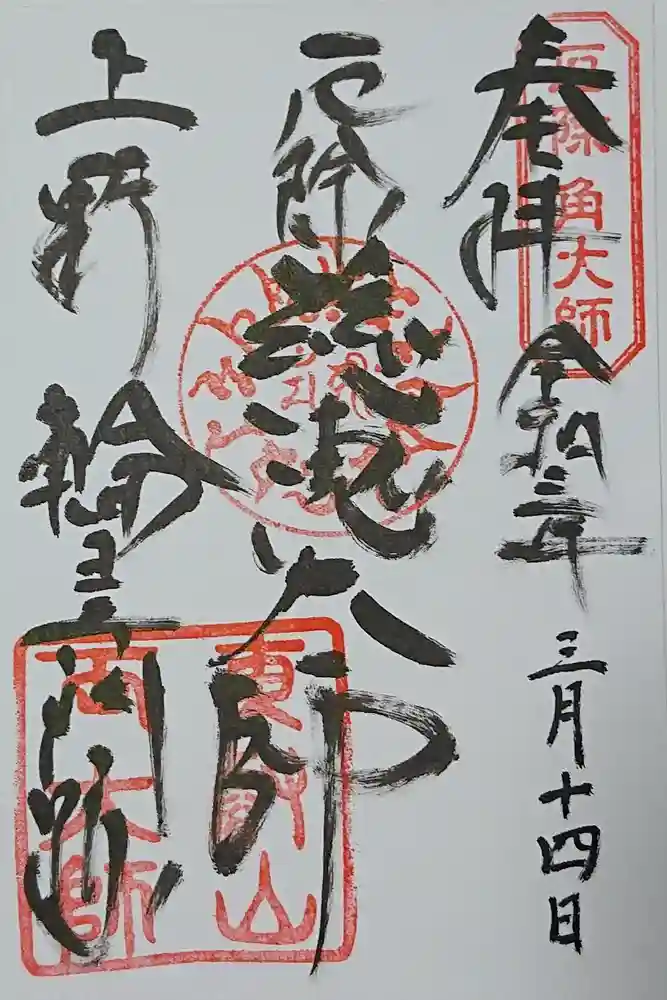 奉拝
令和三年
三月十四日
厄除 角大師
厄除
慈恵大師
上野
輪王両大師
東叡山
両大師